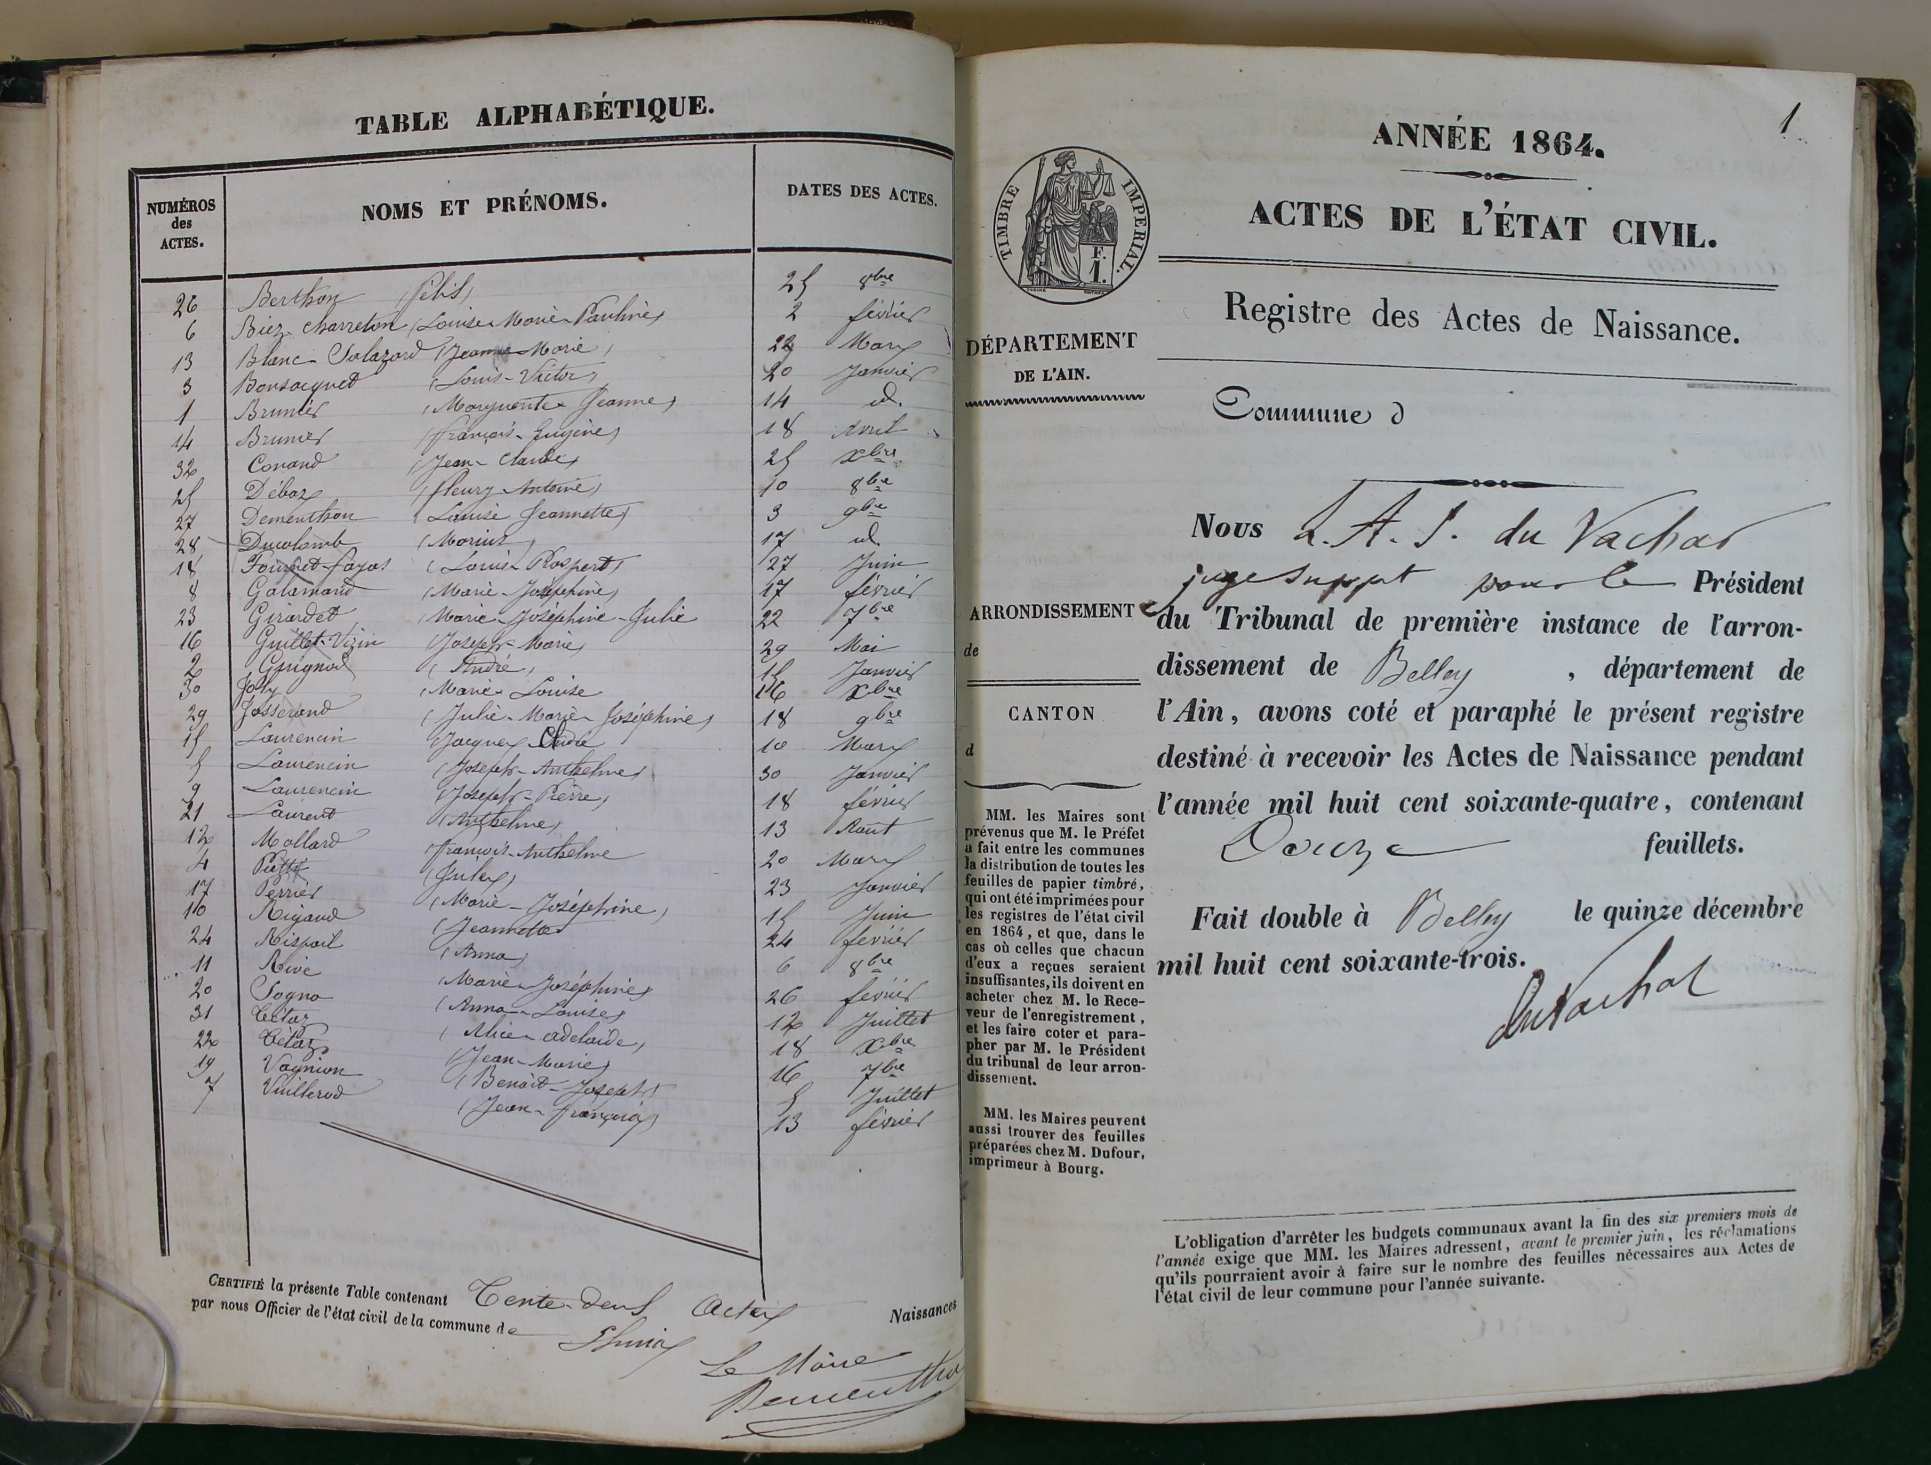 TABLE ALPHABÉTIQUE.
NUMÉROS des ACTES.
NOMS ET PRÉNOMS.
DATES DES ACTES.
26 Berthon (Félis) 25 8bre
6 Biez-Charreton (Louise-Marie-Pauline) 2 février
13 Blanc-Jolazard (Jeanne-Marie) 22 Mars
3 Bonsacquet (Louis-Victor) 20 Janvier
1 Brunier (Marguerite Jeanne) 14 id.
14 Brunier (françois-Eugène) 18 Avril
32 Conand (Jean-Claude) 25 xbre
25 Déboz (fleury-Antoine) 10 8bre
27 Dementhon (Louise Jeannette) 3 9bre
28 Ducolomb (Marius) 17 id.
18 (Louis 27 Juin
8 Galamand (Marie-Joséphine) 17 février
23 Girardet (Marie-Joséphine-Julie 22 7bre
16 Guillet-Vizin (Joseph-Marie) 29 Mai
2 Guignod (André) 15 Janvier
30 Joly (Marie-Louise 16 xbre
29 Josserand (Julie-Marie-Joséphine) 18 9bre
15 Laurencin (Jacques 10 Mars
5 Laurencin (Joseph-Anthelme) 30 Janvier
9 Laurencin (Joseph-Pierre) 18 février
21 Laurent (Anthelme) 13 Aout
12 Mollard françois-Anthelme 20 Mars
4 (Jules) 23 Janvier
17 Perrier (Marie-Joséphine) 15 Juin
10 Rigaud (Jeannette 24 février
24 Rispail (Anna) 6 8bre
11 Rive (Marie-Joséphine) 26 février
20 Sogno (Anna-Louise) 12 Juillet
31 Tétaz (Alice-adelaïde) 18 xbre
22 Tétaz (Jean-Marie) 16 7bre
19 Vagnion (Benoit-Joseph) 5 Juillet
7 Vuillerod (Jean-françois) 13 février
CERTIFIÉ la présente Table contenant Trente-deux Actes Naissances
par nous Officier de l'état civil de la commune de
Le Maire
Dementhon
1
ANNÉE 1864.
ACTES DE L'ÉTAT CIVIL.
TIMBRE IMPERIAL.
F.
1.
Registre des Actes de Naissance.
DÉPARTEMENT
DE L'AIN.
Commune d
Nous L. A. J. du Vachat
juge suppt pour le Président
du Tribunal de première instance de l'arron-
dissement de Belley, département de
l'Ain, avons coté et paraphé le présent registre
destiné à recevoir les Actes de Naissance pendant
l'année mil huit cent soixante-quatre, contenant
Douze feuillets.
Fait double à Belley le quinze décembre
mil huit cent soixante-trois.
duVachat
ARRONDISSEMENT
de
CANTON
d
MM. les Maires sont
prévenus que M. le Préfet
a fait entre les communes
la distribution de toutes les
feuilles de papier timbré,
qui ont été imprimées pour
les registres de l'état civil
en 1864, et que, dans le
cas où celles que chacun
d'eux a reçues seraient
insuffisantes, ils doivent en
acheter chez M. le Rece-
veur de l'enregistrement,
et les faire coter et para-
pher par M. le Président
du tribunal de leur arron-
dissement.
MM. les Maires peuvent
aussi trouver des feuilles
préparées chez M. Dufour,
imprimeur à Bourg.
L'obligation d'arrêter les budgets communaux avant la fin des six premiers mois de
l'année exige que MM. les Maires adressent, avant le premier juin, les réclamations
qu'ils pourraient avoir à faire sur le nombre des feuilles nécessaires aux Actes de
l'état civil de leur commune pour l'année suivante.